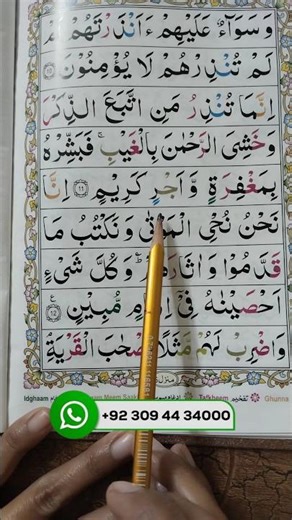 وَسَوَآءٌ عَلَيْهِمْ ءَاَنْذَرْتَهُمْ اَمْ
لَمْ تُنْذِرْهُمْ لَا يُؤْمِنُوْنَ ۝۱۰
اِنَّمَا تُنْذِرُ مَنِ اتَّبَعَ الذِّكْرَ
وَخَشِىَ الرَّحْمٰنَ بِالْغَيْبِ ۚ فَبَشِّرْهُ
بِمَغْفِرَةٍ وَّاَجْرٍ كَرِيْمٍ ۝۱۱ اِنَّا
نَحْنُ نُحْىِ الْمَوْتٰى وَنَكْتُبُ مَا
قَدَّمُوْا وَاٰثَارَهُمْ ؕ وَكُلَّ شَىْءٍ
اَحْصَيْنٰهُ فِىْۤ اِمَامٍ مُّبِيْنٍ ۝۱۲
وَاضْرِبْ لَهُمْ مَّثَلًا اَصْحٰبَ الْقَرْيَةِ
Idghaam Meem Saakin Tafkheem تفخیم Ghunna
+92 309 44 34000